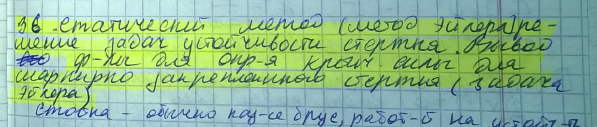 36. Статический метод (метод Эйлера) ре-
шение задач устойчивости стержня. Вывод
ф-лы для опр-я крит силы для
шарнирно закрепленного стержня (задача
Эйлера)
Стойка - обычно наз-се брус, работ-й на устойч-ть